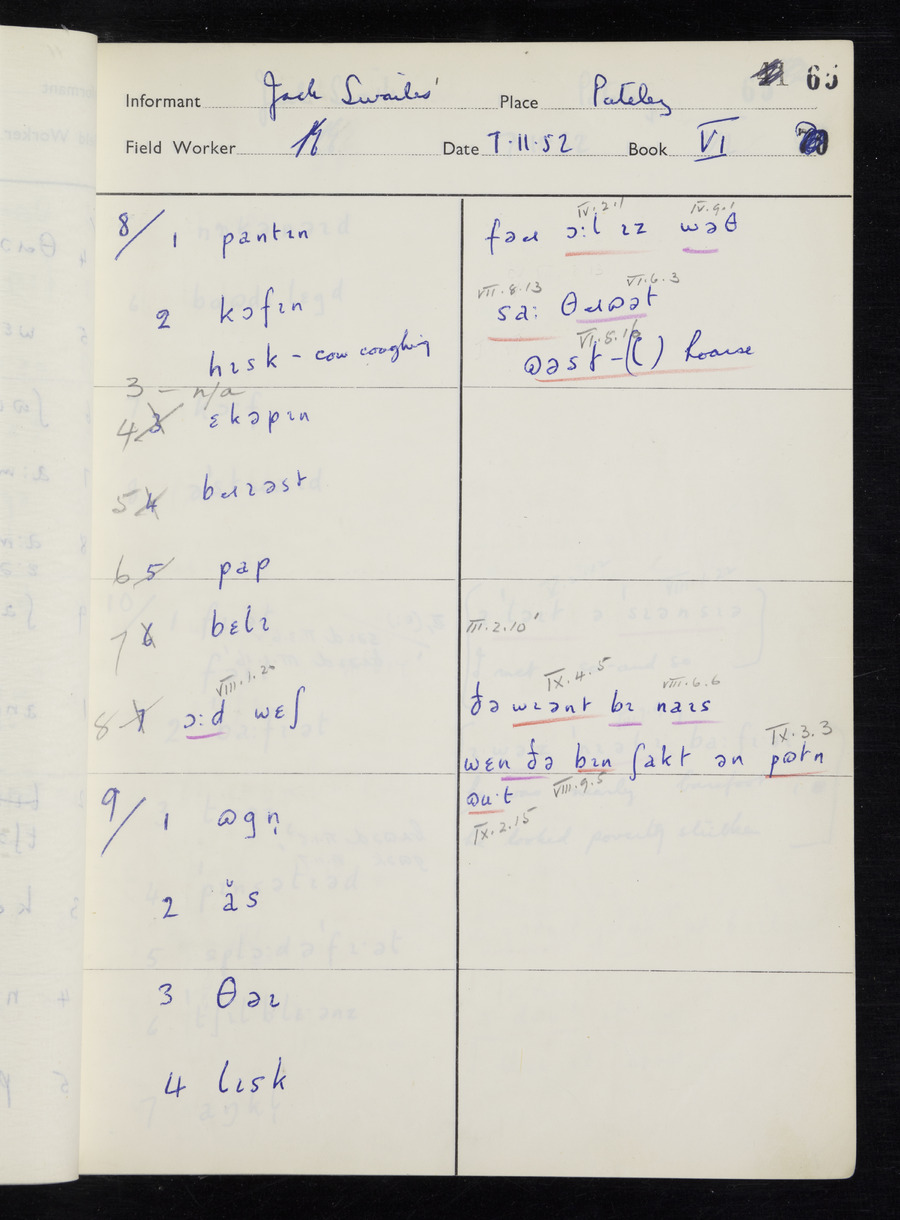 65
Informant Jack Swailes' Place Pateley
Field Worker Date 7.11.52 Book VI
8/ 1 pantɪn
2 kɔfɪn
hɪsk – cow coughing
3 – n/a
4 3 ɛkəpɪn
5 4 bɹɪəst
6 5 pap
7 6 bɛlɪ
VIII.1.20
8 7 ɔ:d wɛʃ
9/ 1 ɷgṇ
2 ăs
3 θəɪ
4 lɪsk
IV.2.1 IV.9.1
fəɹ ɔ:l ɪz wəθ
VII.8.13 VI.6.3
sa: θɹɷət
VI.5.16
ɷəst – ( ) hoarse
III.2.10
IX.4.5 VII.6.6
ðə wɪənt bɪ naɪs
IX.3.3
wɛn ðə bɪn ʃakt ən pɷtn
ɷu·t VIII.9.5
IX.2.15